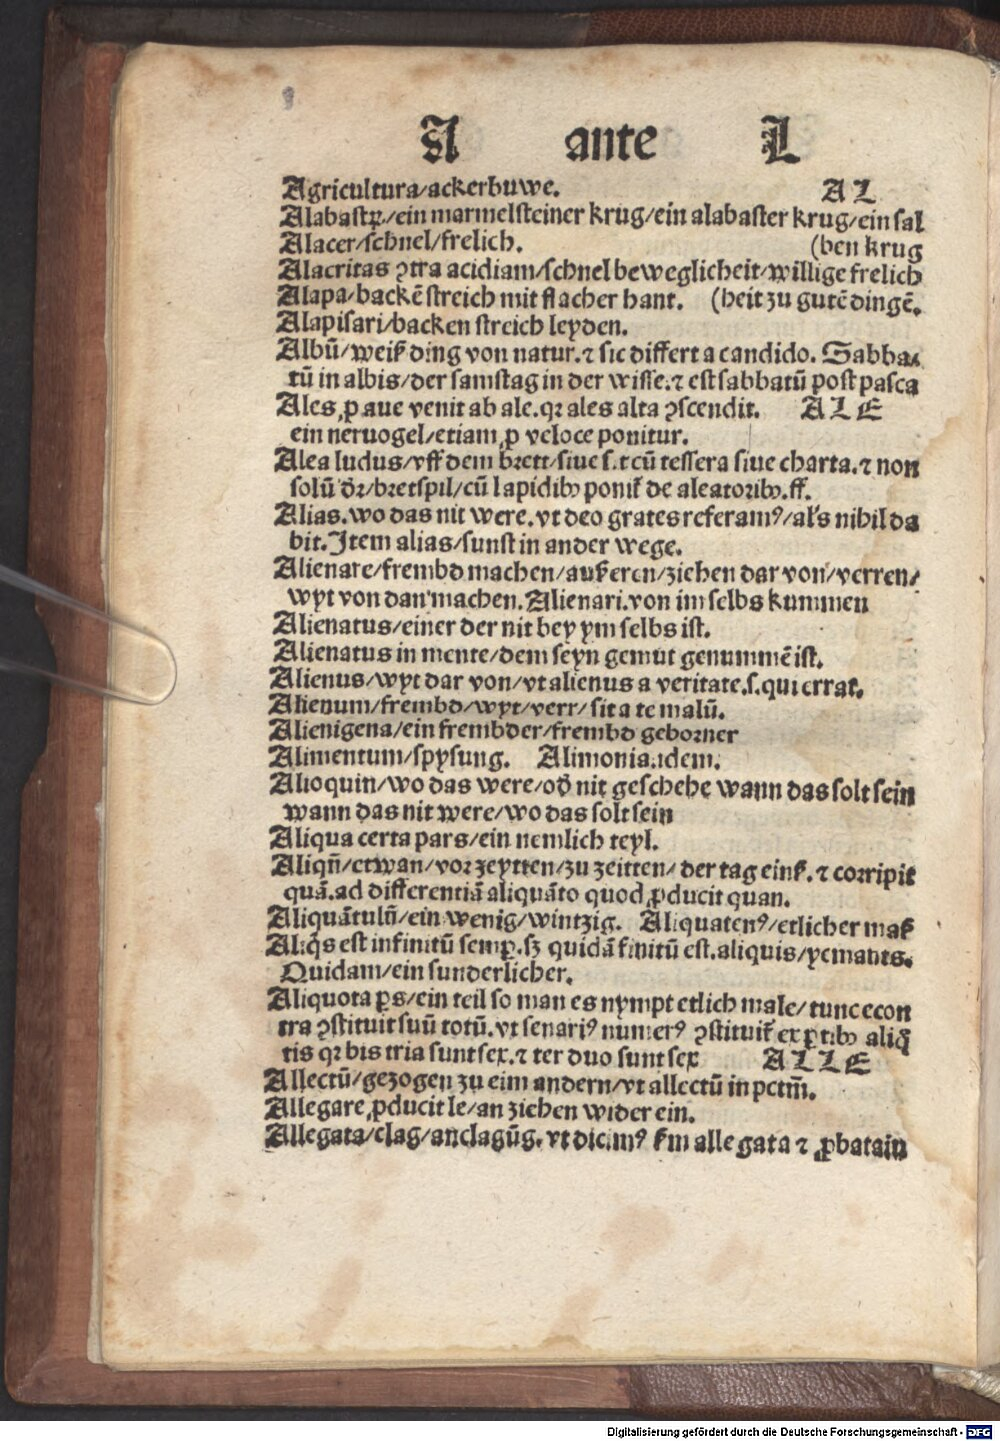 A ante L
Agricultura/ackerbuwe. AL
Alabastꝝ/ein marmelsteiner krug/ein alabaster krug/ein sal
Alacer/schnel/frelich. (ben krug
Alacritas ꝯtra acidiam/schnel beweglicheit/willige frelich
Alapa/backē streich mit flacher hant. (heit zu gutē dingē.
Alapisari/backen streich leyden.
Albū/weiß ding von natur.⁊ sic differt a candido. Sabba⸗
tū in albis/der samstag in der wisse.⁊ est sabbatū post pasca
Ales ꝓ aue venit ab ale.qꝛ ales alta ꝯscendit. ALE
ein neruogel/etiam ꝓ veloce ponitur.
Alea ludus/vff dem brett/siue s.t cū tessera siue charta.⁊ non
solū dr̄/bretspil/cū lapidibꝰ ponit̄ de aleatoribꝰ.ff.
Alias.wo das nit were.vt deo grates referamꝰ/al's nihil da
bit.Item alias/sunst in ander wege.
Alienare/frembd machen/außeren/ziehen dar von/verren/
wyt von dan machen.Alienari.von im selbs kummen
Alienatus/einer der nit bey ym selbs ist.
Alienatus in mente/dem seyn gemut genummē ist.
Alienus/wyt dar von/vt alienus a veritate.s.qui errat.
Alienum/frembd/wyt/verr/sit a te malū.
Alienigena/ein frembder/frembd geborner
Alimentum/spysung. Alimonia.idem.
Alioquin/wo das were/od̄ nit geschehe wann das solt sein
wann das nit were/wo das solt sein
Aliqua certa pars/ein nemlich teyl.
Aliqn̄/etwan/vor zeytten/zu zeitten/der tag einß.⁊ corripit
quā.ad differentiā aliquāto quod ꝓducit quan.
Aliquātulū/ein wenig/wintzig. Aliquatenꝰ/etlicher maß
Aliq̄s est infinitū semꝑ.sꝫ quidā finitū est.aliquis/yemants.
Quidam/ein sunderlicher.
Aliquota ꝑs/ein teil so man es nympt etlich male/tunc econ
tra ꝯstituit suū totū.vt senariꝰ numerꝰ ꝯstituit̄ ex ꝑtibꝰ aliq̄
tis qꝛ bis tria sunt sex.⁊ ter duo sunt sex ALLE
Allectū/gezogen zu eim andern/vt allectū in pctm̄.
Allegare ꝓducit le/an ziehen wider ein.
Allegata/clag/anclagūg.vt dicimꝰ ẜm allegata ⁊ ꝓbata iu
Digitalisierung gefördert durch die Deutsche Forschungsgemeinschaft - DFG